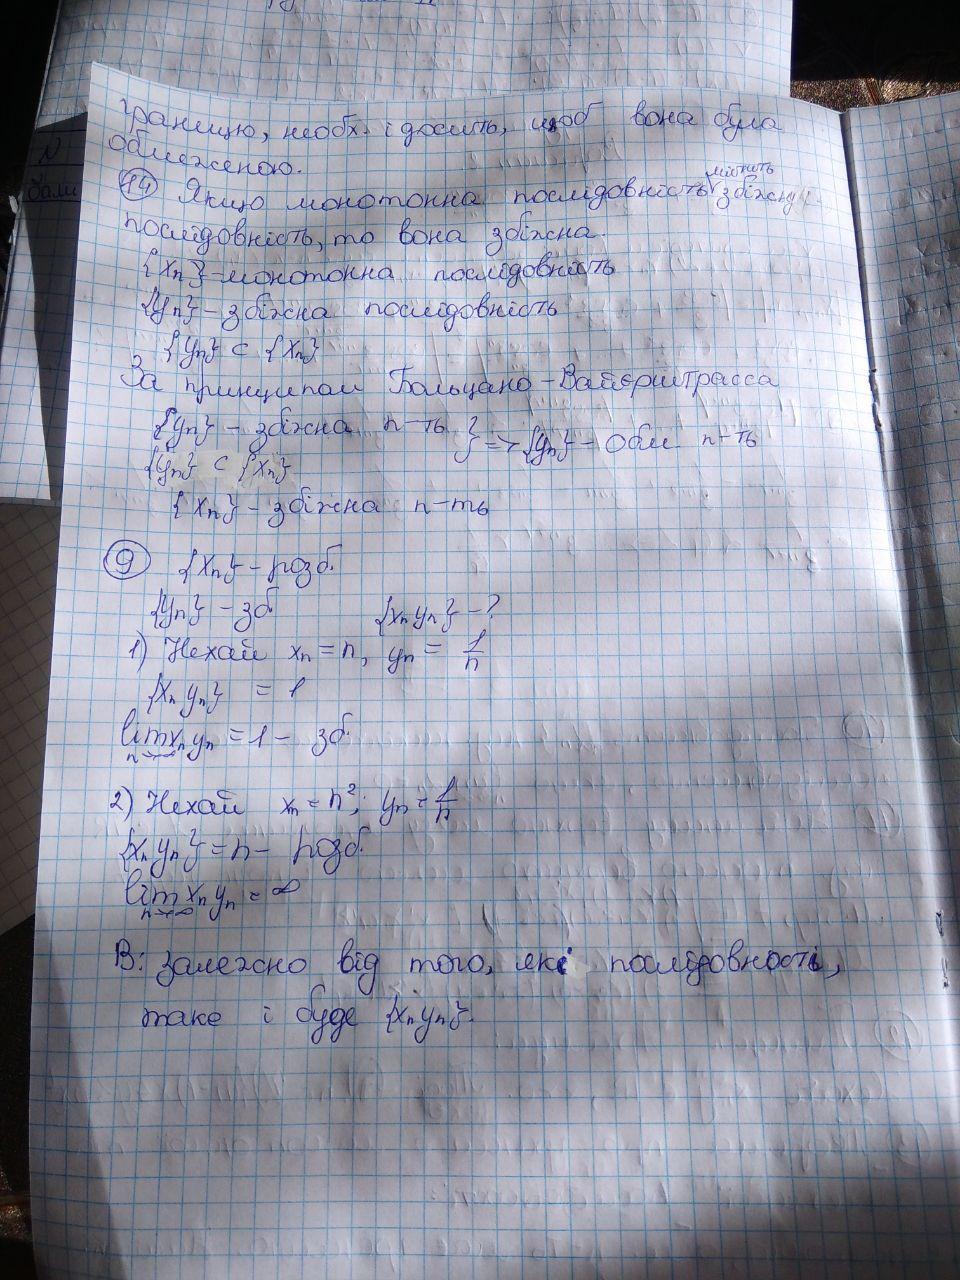 границю, необх. і досить, щоб вона була
обмеженою.
14 Якщо монотонна послідовність містить збіжну
послідовність, то вона збіжна.
{xn} - монотонна послідовність
{yn} - збіжна послідовність
{yn} ⊂ {xn}
За принципом Больцано - Вайєрштрасса
{yn} - збіжна п-ть } => {yn} - обм п-ть
{yn} ⊂ {xn}
{xn} - збіжна п-ть
9 {xn} - розб.
{yn} - зб {xn yn} - ?
1) Нехай xn = n, yn = 1/n
{xn yn} = 1
lim xn yn = 1 - зб.
n→∞
2) Нехай xn = n², yn = 1/n
{xn yn} = n - розб.
lim xn yn = ∞
n→∞
В: залежно від того, які послідовності,
таке і буде {xn yn}.